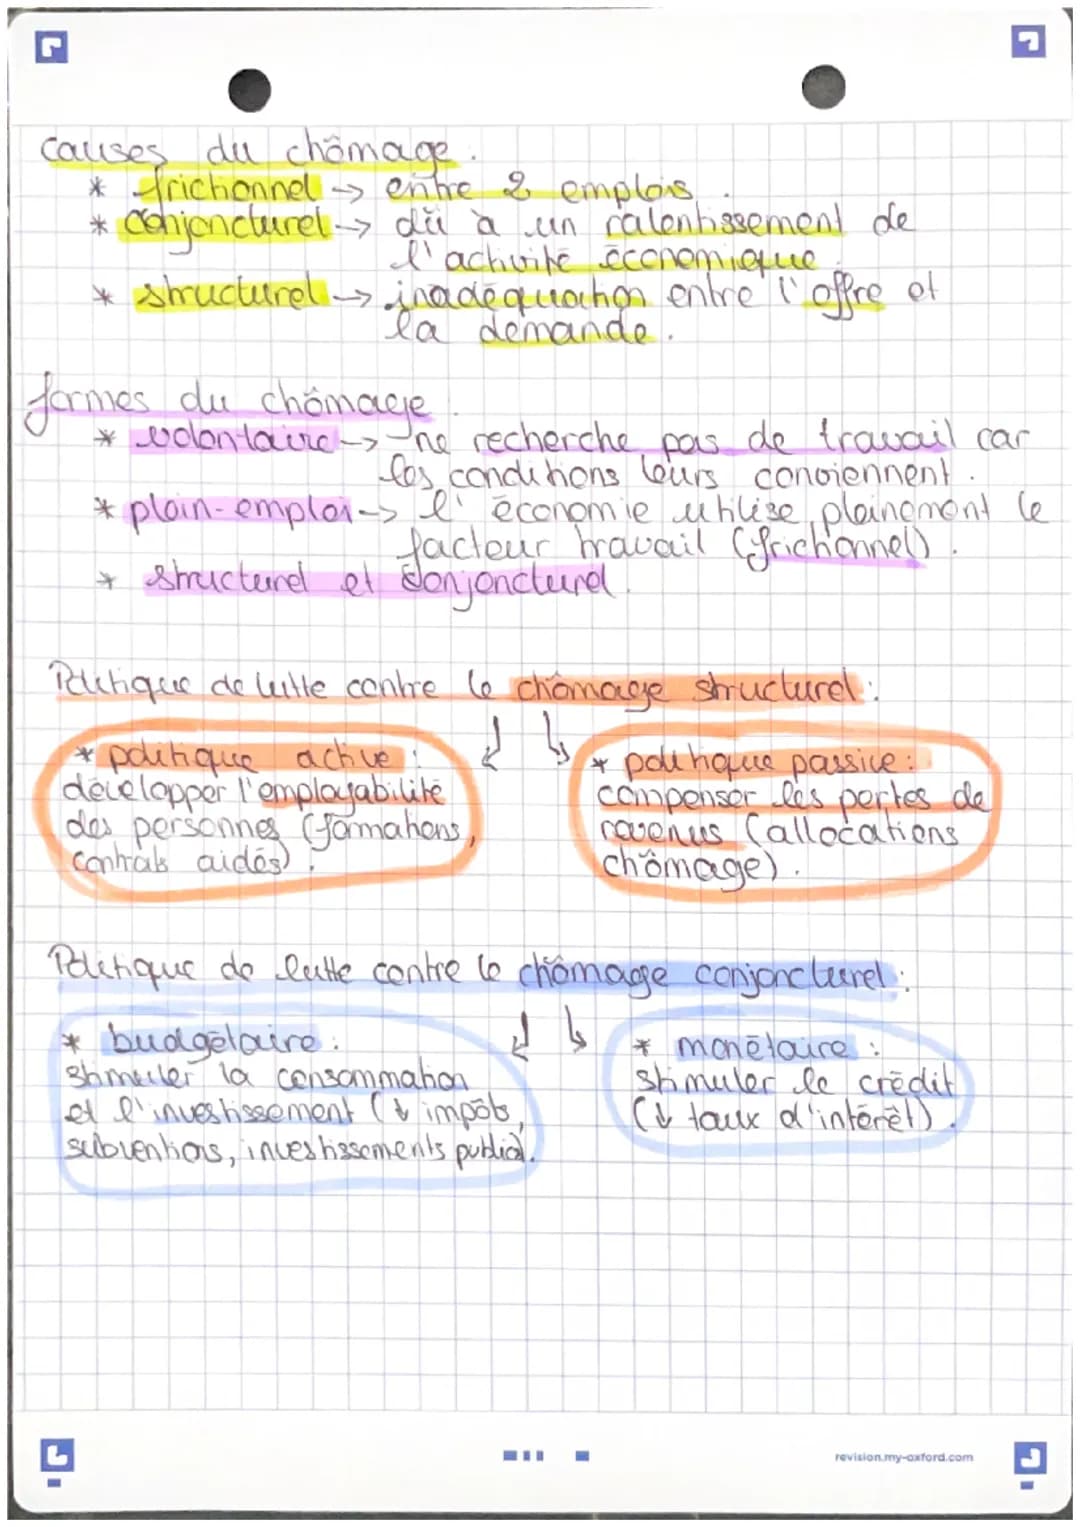 causes du chômage.
* frictionnel → entre 2 emplois.
* conjoncturel → dû à un ralentissement de
l'activité économique.
* structurel → inadéquation entre l'offre et
la demande.
formes du chômage.
* volontaire → ne recherche pas de travail car
les conditions leurs conviennent.
* plein-emploi → l'économie utilise pleinement le
facteur travail (frictionnel).
* structurel et conjoncturel.
Politique de lutte contre le chômage structurel :
* politique active :
développer l'employabilité
des personnes (formations,
contrats aidés).
* politique passive :
compenser les pertes de
revenus (allocations
chômage).
Politique de lutte contre le chômage conjoncturel :
* budgétaire :
stimuler la consommation
et l'investissement (↓ impôts,
subventions, investissements public).
* monétaire :
stimuler le crédit
(↓ taux d'intérêt).
revision.my-oxford.com